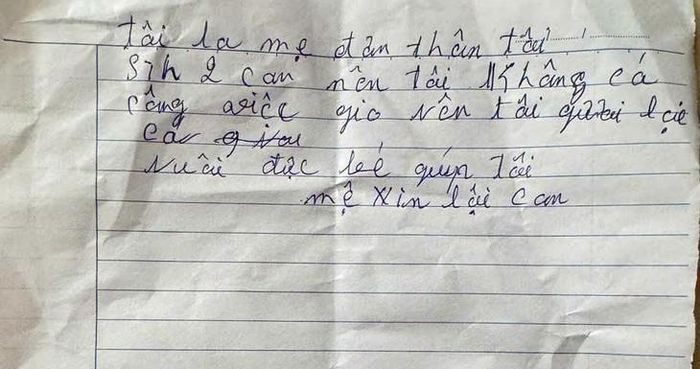 tôi la mẹ đơn thân tôi
Sih 2 con nên tôi Không có
công việc gio nên tôi gửi lại
Nuôi đọc bé giúp tôi
mẹ Xin lỗi con